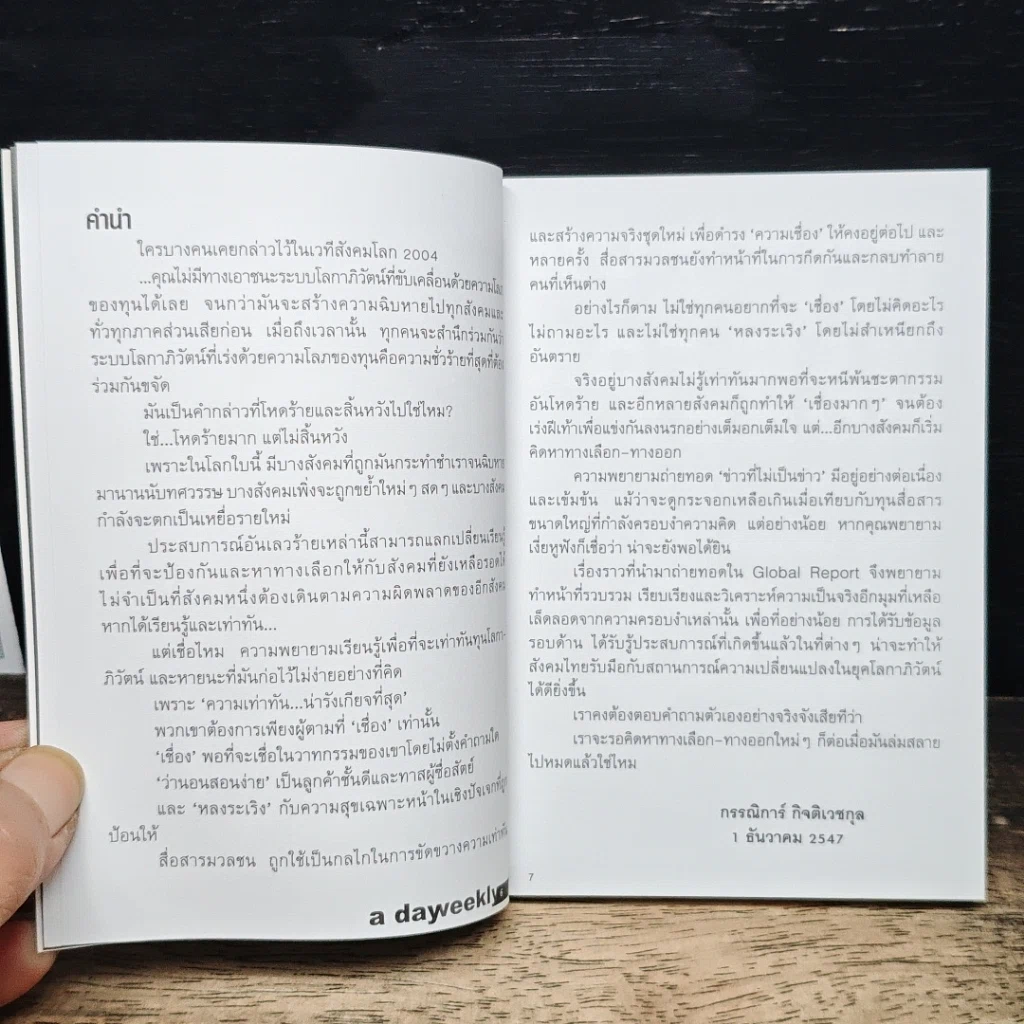 คำนำ
ใครบางคนเคยกล่าวไว้ในเวทีสังคมโลก 2004
...คุณไม่มีทางเอาชนะระบบโลกาภิวัตน์ที่ขับเคลื่อนด้วยความโลภ
ของทุนได้เลย จนกว่ามันจะสร้างความฉิบหายไปทุกสังคมและ
ทั่วทุกภาคส่วนเสียก่อน เมื่อถึงเวลานั้น ทุกคนจะสำนึกร่วมกันว่า
ระบบโลกาภิวัตน์ที่เร่งด้วยความโลภของทุนคือความชั่วร้ายที่สุดที่ต้อง
ร่วมกันขจัด
มันเป็นคำกล่าวที่โหดร้ายและสิ้นหวังไปใช่ไหม?
ใช่...โหดร้ายมาก แต่ไม่สิ้นหวัง
เพราะในโลกใบนี้ มีบางสังคมที่ถูกมันกระทำชำเราจนฉิบหาย
มานานนับทศวรรษ บางสังคมเพิ่งจะถูกขย้ำใหม่ๆ สดๆ และบางสังคม
กำลังจะตกเป็นเหยื่อรายใหม่
ประสบการณ์อันเลวร้ายเหล่านี้สามารถแลกเปลี่ยนเรียนรู้
เพื่อที่จะป้องกันและหาทางเลือกให้กับสังคมที่ยังเหลือรอดได้
ไม่จำเป็นที่สังคมหนึ่งต้องเดินตามความผิดพลาดของอีกสังคม
หากได้เรียนรู้และเท่าทัน...
แต่เชื่อไหม ความพยายามเรียนรู้เพื่อที่จะเท่าทันทุนโลกา-
ภิวัตน์ และหายนะที่มันก่อไว้ไม่ง่ายอย่างที่คิด
เพราะ ‘ความเท่าทัน...น่ารังเกียจที่สุด’
พวกเขาต้องการเพียงผู้ตามที่ ‘เชื่อง’ เท่านั้น
‘เชื่อง’ พอที่จะเชื่อในวาทกรรมของเขาโดยไม่ตั้งคำถามใด
‘ว่านอนสอนง่าย’ เป็นลูกค้าชั้นดีและทาสผู้ซื่อสัตย์
และ ‘หลงระเริง’ กับความสุขเฉพาะหน้าในเชิงปัจเจกที่ถูก
ป้อนให้
สื่อสารมวลชน ถูกใช้เป็นกลไกในการขัดขวางความเท่าทัน
a dayweekly
และสร้างความจริงชุดใหม่ เพื่อดำรง ‘ความเชื่อง’ ให้คงอยู่ต่อไป และ
หลายครั้ง สื่อสารมวลชนยังทำหน้าที่ในการกีดกันและกลบทำลาย
คนที่เห็นต่าง
อย่างไรก็ตาม ไม่ใช่ทุกคนอยากที่จะ ‘เชื่อง’ โดยไม่คิดอะไร
ไม่ถามอะไร และไม่ใช่ทุกคน ‘หลงระเริง’ โดยไม่สำเหนียกถึง
อันตราย
จริงอยู่บางสังคมไม่รู้เท่าทันมากพอที่จะหนีพ้นชะตากรรม
อันโหดร้าย และอีกหลายสังคมก็ถูกทำให้ ‘เชื่องมากๆ’ จนต้อง
เร่งฝีเท้าเพื่อแข่งกันลงนรกอย่างเต็มอกเต็มใจ แต่...อีกบางสังคมก็เริ่ม
คิดหาทางเลือก-ทางออก
ความพยายามถ่ายทอด ‘ข่าวที่ไม่เป็นข่าว’ มีอยู่อย่างต่อเนื่อง
และเข้มข้น แม้ว่าจะดูกระจอกเหลือเกินเมื่อเทียบกับทุนสื่อสาร
ขนาดใหญ่ที่กำลังครอบงำความคิด แต่อย่างน้อย หากคุณพยายาม
เงี่ยหูฟังก็เชื่อว่า น่าจะยังพอได้ยิน
เรื่องราวที่นำมาถ่ายทอดใน Global Report จึงพยายาม
ทำหน้าที่รวบรวม เรียบเรียงและวิเคราะห์ความเป็นจริงอีกมุมที่เหลือ
เล็ดลอดจากความครอบงำเหล่านั้น เพื่อที่อย่างน้อย การได้รับข้อมูล
รอบด้าน ได้รับรู้ประสบการณ์ที่เกิดขึ้นแล้วในที่ต่างๆ น่าจะทำให้
สังคมไทยรับมือกับสถานการณ์ความเปลี่ยนแปลงในยุคโลกาภิวัตน์
ได้ดียิ่งขึ้น
เราคงต้องตอบคำถามตัวเองอย่างจริงจังเสียทีว่า
เราจะรอคิดหาทางเลือก-ทางออกใหม่ๆ ก็ต่อเมื่อมันล่มสลาย
ไปหมดแล้วใช่ไหม
กรรณิการ์ กิจติเวชกุล
1 ธันวาคม 2547
7